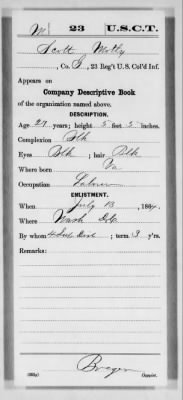 M | 23 | U.S.C.T.
Scott Motly
, Co. I, 23 Reg't U.S. Col'd Inf.
Appears on
Company Descriptive Book
of the organization named above.
DESCRIPTION.
Age 27 years; height 5 feet 5 inches.
Complexion Blk
Eyes Blk; hair Blk
Where born Va
Occupation Laborer
ENLISTMENT.
When July 13, 1864.
Where Wash D.C.
By whom; term 3 y'rs.
Remarks:
Copyist.